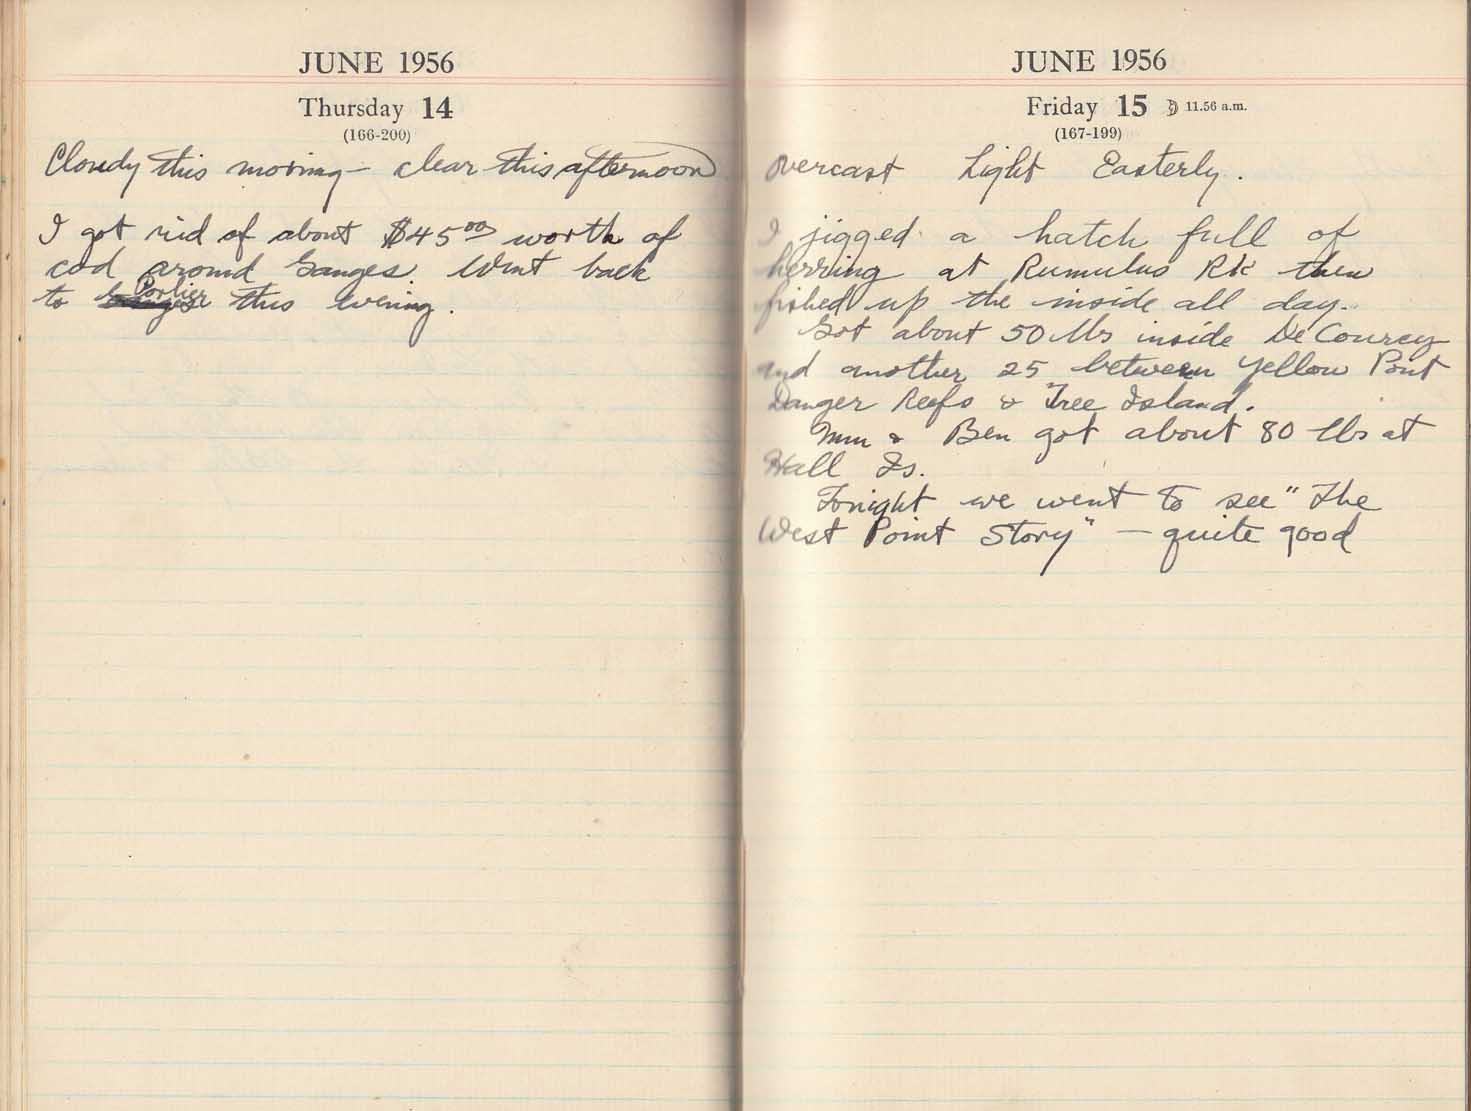 JUNE 1956
Thursday 14
(166-200)
Cloudy this morning - clear this afternoon
I got rid of about $45.00 worth of
cod around Ganges. Went back
to Porlier this evening.
JUNE 1956
Friday 15 11.56 a.m.
(167-199)
Overcast Light Easterly.
I jigged a hatch full of
herring at Rumulus Rk then
fished up the inside all day.
Got about 50 lbs inside De Courcy
and another 25 between Yellow Point
Danger Reefs & Tree Island.
Mum & Ben got about 80 lbs at
Hall Is.
Tonight we went to see "The
West Point Story" — quite good